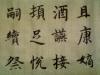 且康嫡
酒讌接
頓足悅
嗣續祭